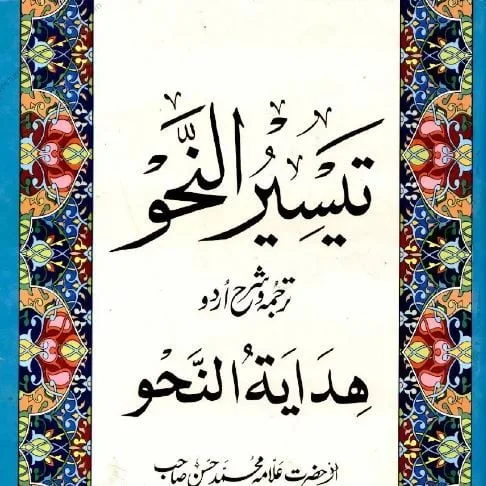 تَيسِيرُ النَّحو
ترجمہ و شرح اُردو
هِدَايَةُ النَّحو
از حضرت علامہ محمد حسن صاحب